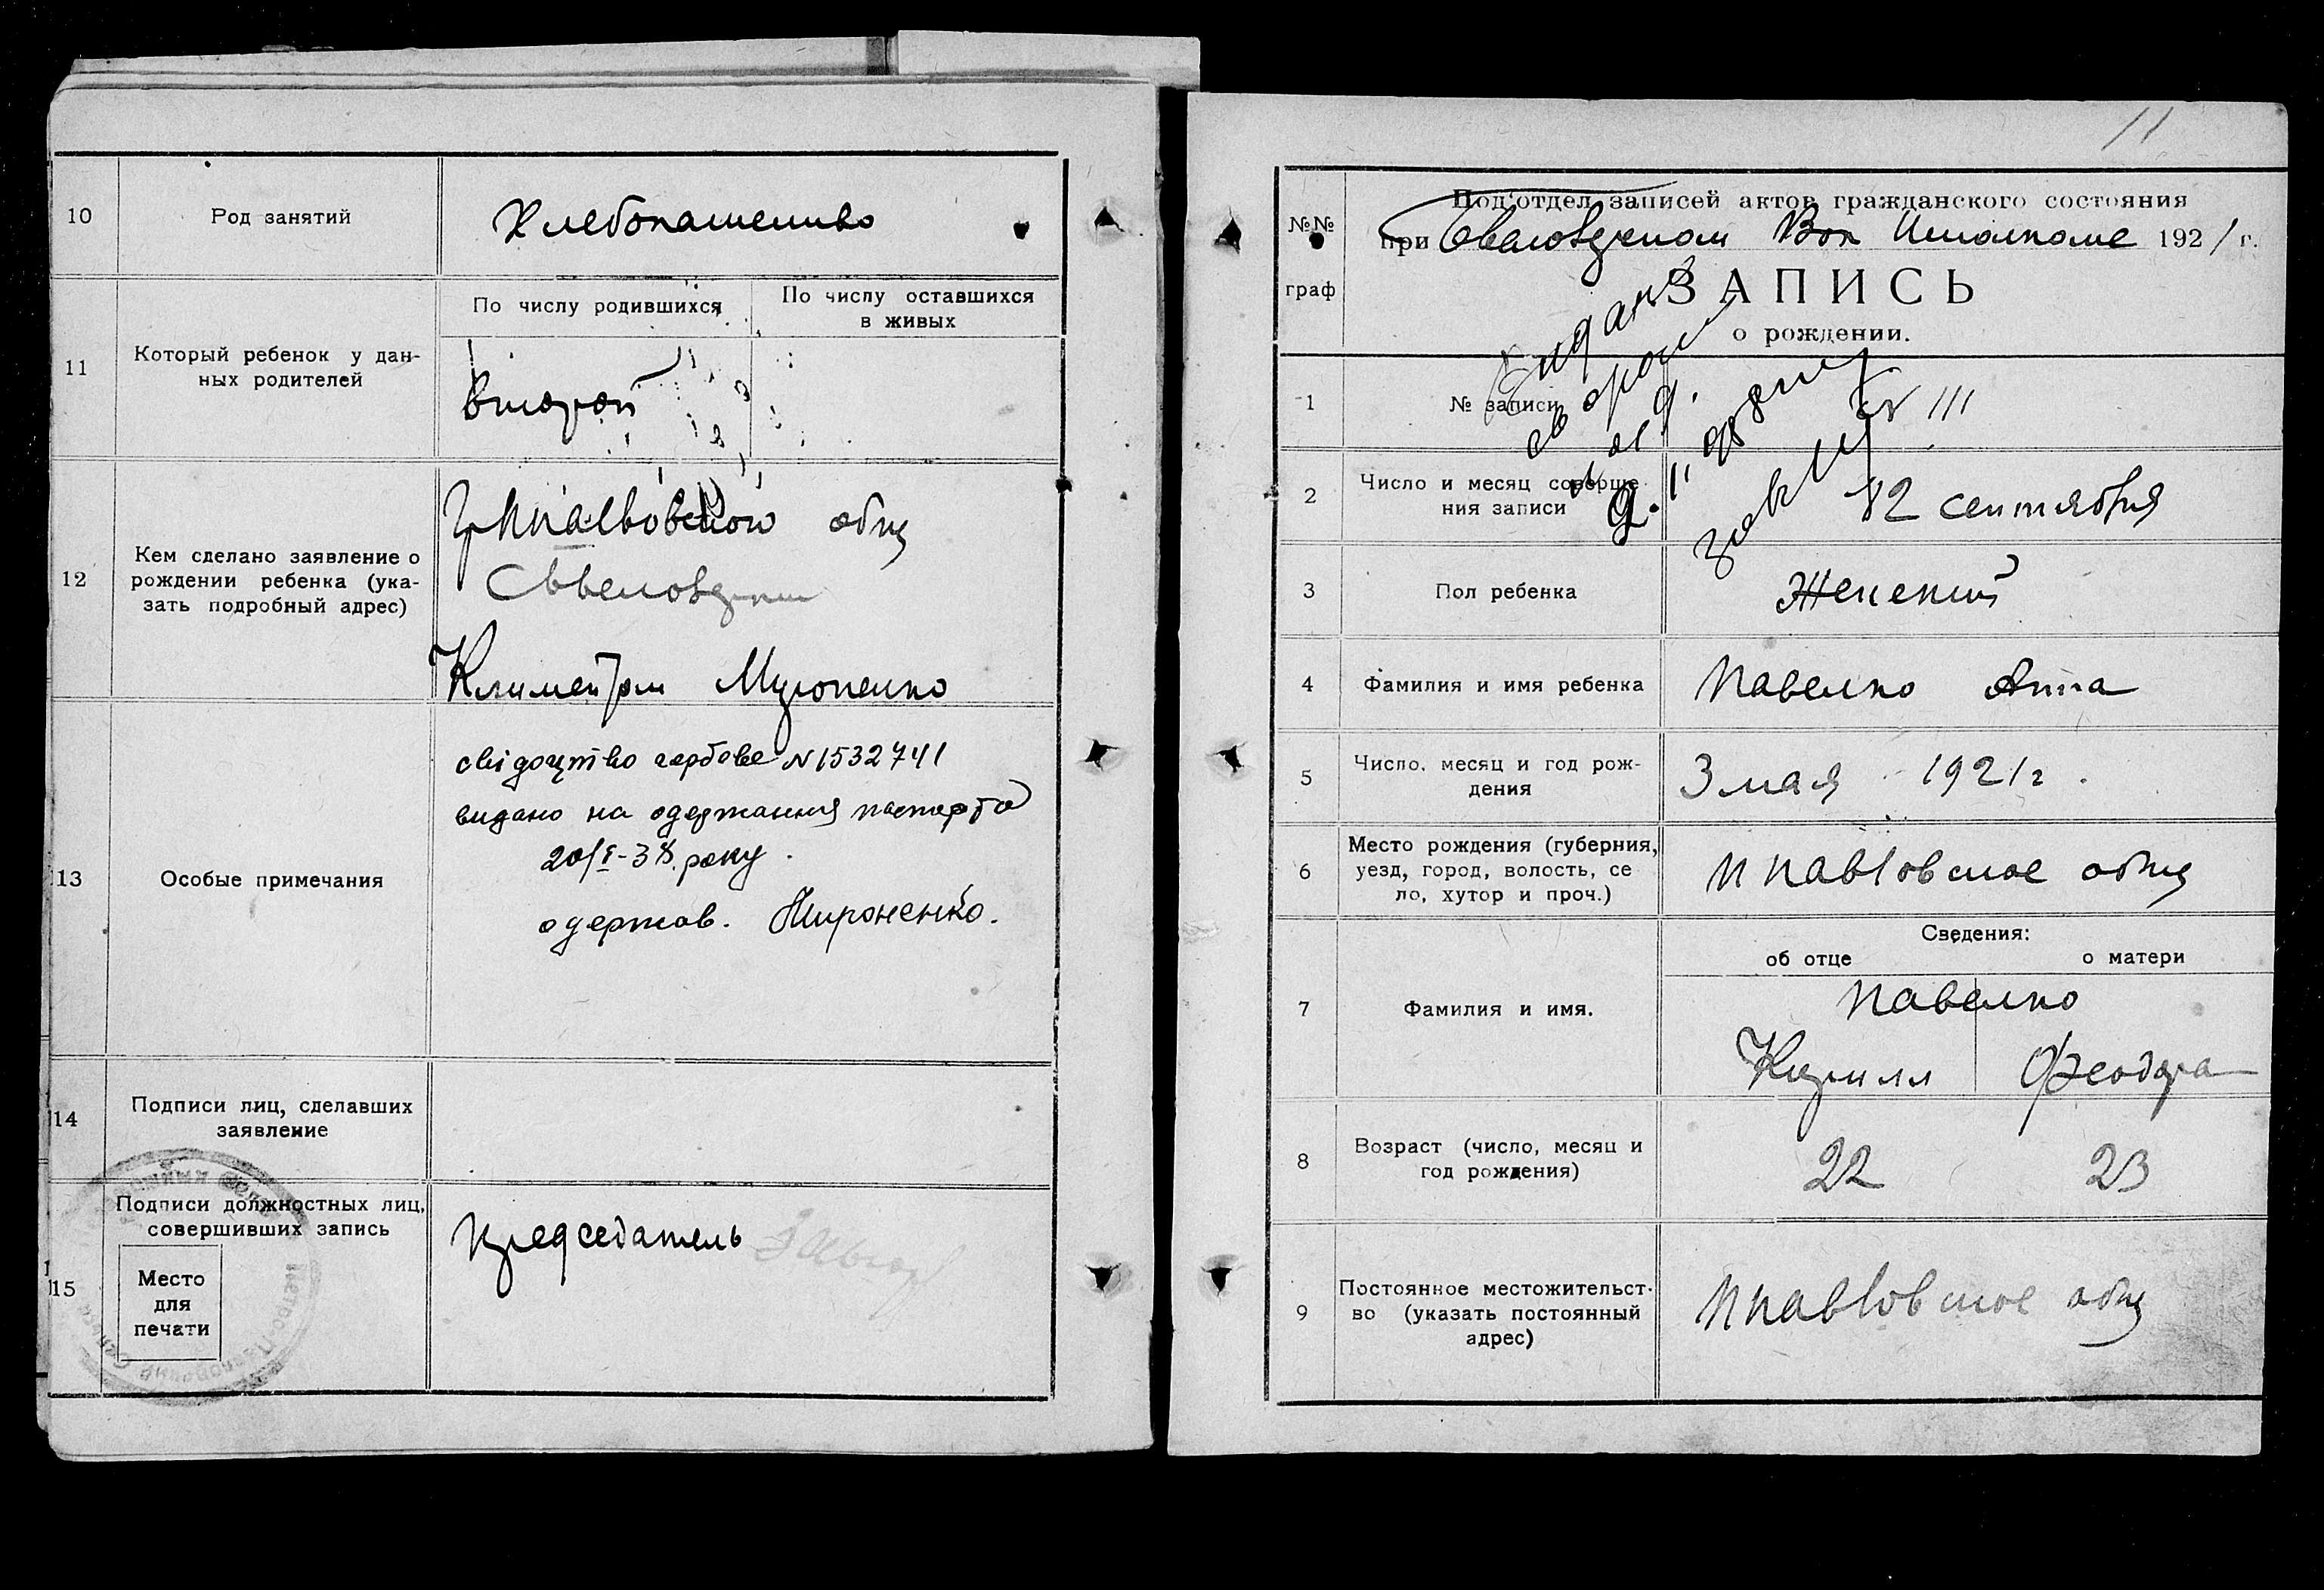 10
Род занятий
Хлебопашество
11
Который ребенок у дан-
ных родителей
По числу родившихся
По числу оставшихся
в живых
второй
12
Кем сделано заявление о
рождении ребенка (ука-
зать подробный адрес)
общ
Климентом Мироненко
13
Особые примечания
свідоцтво гербове N 1532741
видано на одержання паспорта
року
одержав. Мироненко.
14
Подписи лиц, сделавших
заявление
15
Подписи должностных лиц,
совершивших запись
Место
для
печати
Председатель
11
№№
граф
Под'отдел записей актов гражданского состояния
при Вол Исполкоме 1921 г.
ЗАПИСЬ
о рождении.
1
№ записи
N 111
2
Число и месяц соверше
ния записи
12 сентября
3
Пол ребенка
Женский
4
Фамилия и имя ребенка
Павелко Анна
5
Число, месяц и год рож-
дения
3 мая 1921 г.
6
Место рождения (губерния,
уезд, город, волость, се
ло, хутор и проч.)
общ
7
Фамилия и имя.
Сведения:
об отце
о матери
Павелко
Кирилл
Феодора
8
Возраст (число, месяц и
год рождения)
22
23
9
Постоянное местожительст-
во (указать постоянный
адрес)
общ